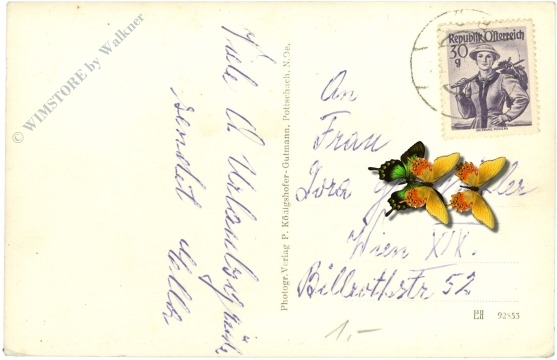 © WIMSTORE by Walkner
Viele
Urlaubsgrüße
sendet
Photogr.-Verlag P. Königshofer-Gutmann, Pottschach, N.Oe.
Republik Österreich
30
g
An
Frau
Dora
Wien XIX.
Billrothstr 52
1.-
92853